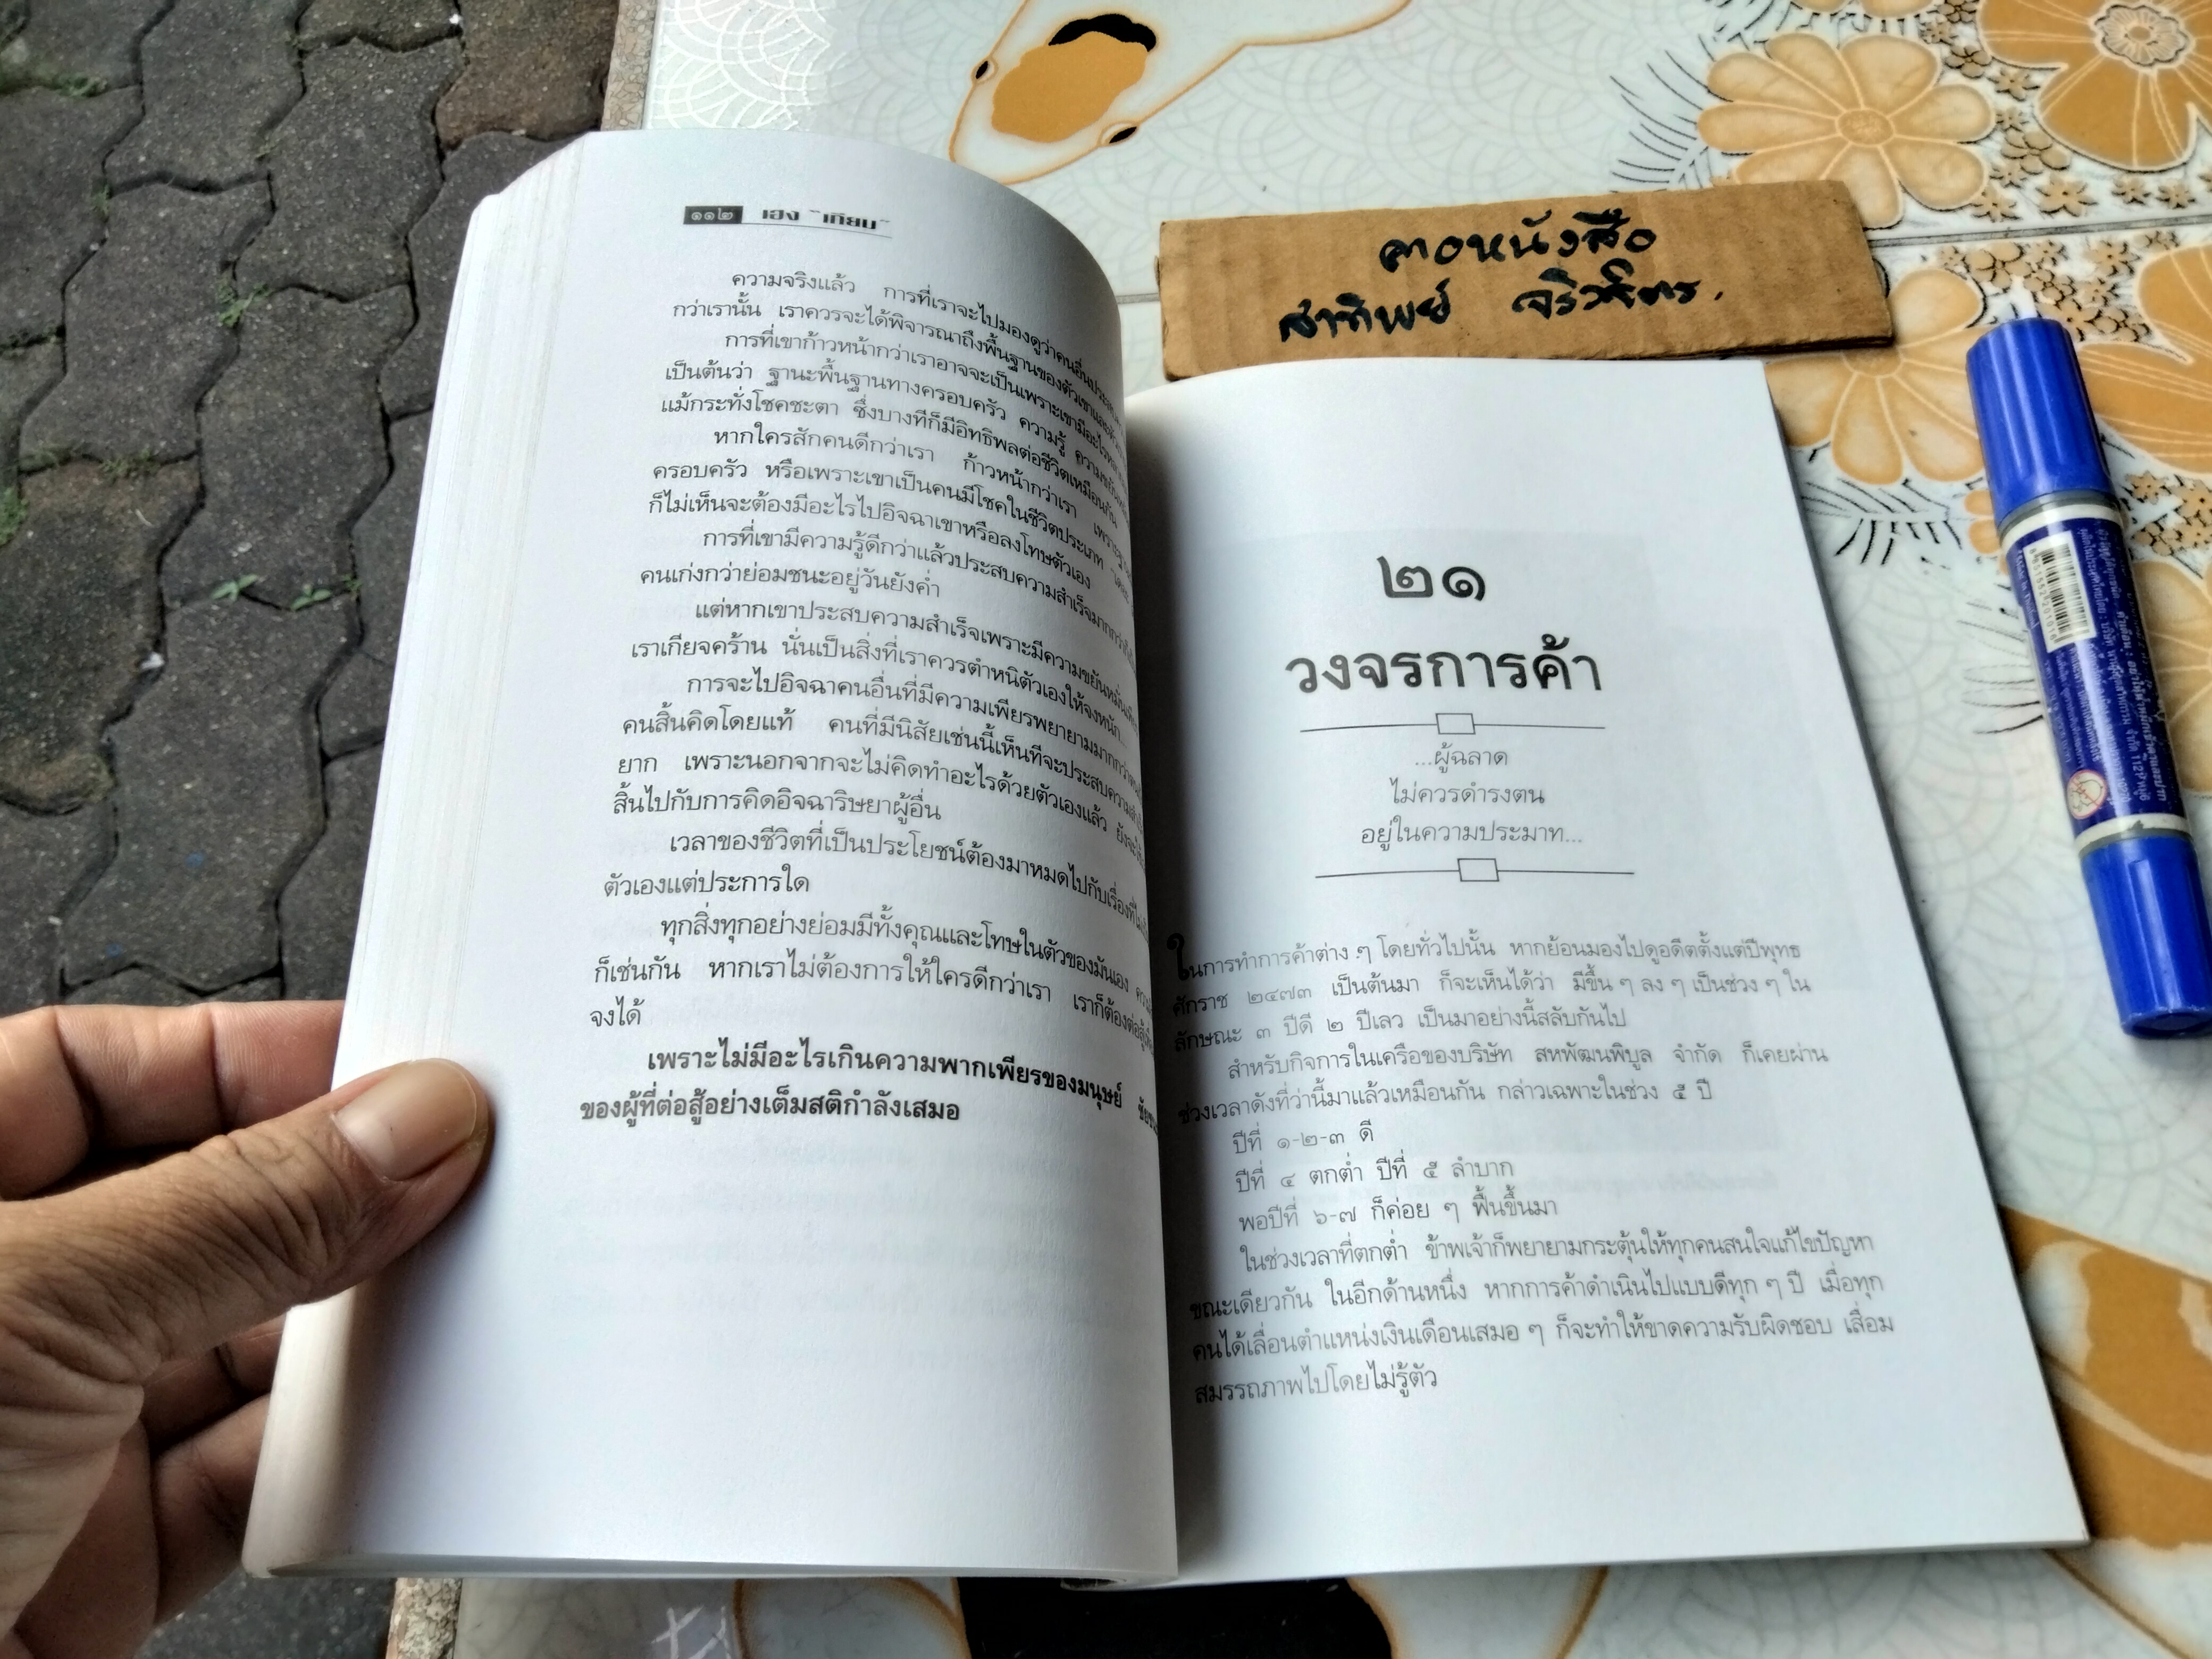 ๑๑๒ เฮง "เกียบ"
ความจริงแล้ว การที่เราจะไปมองดูว่าคนอื่น
กว่าเรานั้น เราควรจะได้พิจารณาถึงพื้นฐานของตัวเขาและ
การที่เขาก้าวหน้ากว่าเราอาจจะเป็นเพราะเขามีอะไร
เป็นต้นว่า ฐานะพื้นฐานทางครอบครัว ความรู้ ความขยัน
แม้กระทั่งโชคชะตา ซึ่งบางทีก็มีอิทธิพลต่อชีวิตเหมือนกัน
หากใครสักคนดีกว่าเรา ก้าวหน้ากว่าเรา เพราะ
ครอบครัว หรือเพราะเขาเป็นคนมีโชคในชีวิตประเภท
ก็ไม่เห็นจะต้องมีอะไรไปอิจฉาเขาหรือลงโทษตัวเอง
การที่เขามีความรู้ดีกว่าแล้วประสบความสำเร็จมากกว่า
คนเก่งกว่าย่อมชนะอยู่วันยังค่ำ
แต่หากเขาประสบความสำเร็จเพราะมีความขยันหมั่นเพียร
เราเกียจคร้าน นั่นเป็นสิ่งที่เราควรตำหนิตัวเองให้จงหนัก...
การจะไปอิจฉาคนอื่นที่มีความเพียรพยายามมากกว่า
คนสิ้นคิดโดยแท้ คนที่มีนิสัยเช่นนี้เห็นทีจะประสบความ
ยาก เพราะนอกจากจะไม่คิดทำอะไรด้วยตัวเองแล้ว ยังจะ
สิ้นไปกับการคิดอิจฉาริษยาผู้อื่น
เวลาของชีวิตที่เป็นประโยชน์ต้องมาหมดไปกับเรื่องที่
ตัวเองแต่ประการใด
ทุกสิ่งทุกอย่างย่อมมีทั้งคุณและโทษในตัวของมันเอง
ก็เช่นกัน หากเราไม่ต้องการให้ใครดีกว่าเรา เราก็ต้องต่อสู้
จงได้
เพราะไม่มีอะไรเกินความพากเพียรของมนุษย์
ของผู้ที่ต่อสู้อย่างเต็มสติกำลังเสมอ
ศาอหนังสือ
สาทิพย์
๒๑
วงจรการค้า
...ผู้ฉลาด
ไม่ควรดำรงตน
อยู่ในความประมาท...
ในการทำการค้าต่าง ๆ โดยทั่วไปนั้น หากย้อนมองไปดูอดีตตั้งแต่ปีพุทธ
ศักราช ๒๔๗๓ เป็นต้นมา ก็จะเห็นได้ว่า มีขึ้น ๆ ลง ๆ เป็นช่วง ๆ ใน
ลักษณะ ๓ ปีดี ๒ ปีเลว เป็นมาอย่างนี้สลับกันไป
สำหรับกิจการในเครือของบริษัท สหพัฒนพิบูล จำกัด ก็เคยผ่าน
ช่วงเวลาดังที่ว่านี้มาแล้วเหมือนกัน กล่าวเฉพาะในช่วง ๕ ปี
ปีที่ ๑-๒-๓ ดี
ปีที่ ๔ ตกต่ำ ปีที่ ๕ ลำบาก
พอปีที่ ๖-๗ ก็ค่อย ๆ ฟื้นขึ้นมา
ในช่วงเวลาที่ตกต่ำ ข้าพเจ้าก็พยายามกระตุ้นให้ทุกคนสนใจแก้ไขปัญหา
ขณะเดียวกัน ในอีกด้านหนึ่ง หากการค้าดำเนินไปแบบดีทุก ๆ ปี เมื่อทุก
คนได้เลื่อนตำแหน่งเงินเดือนเสมอ ๆ ก็จะทำให้ขาดความรับผิดชอบ เสื่อม
สมรรถภาพไปโดยไม่รู้ตัว